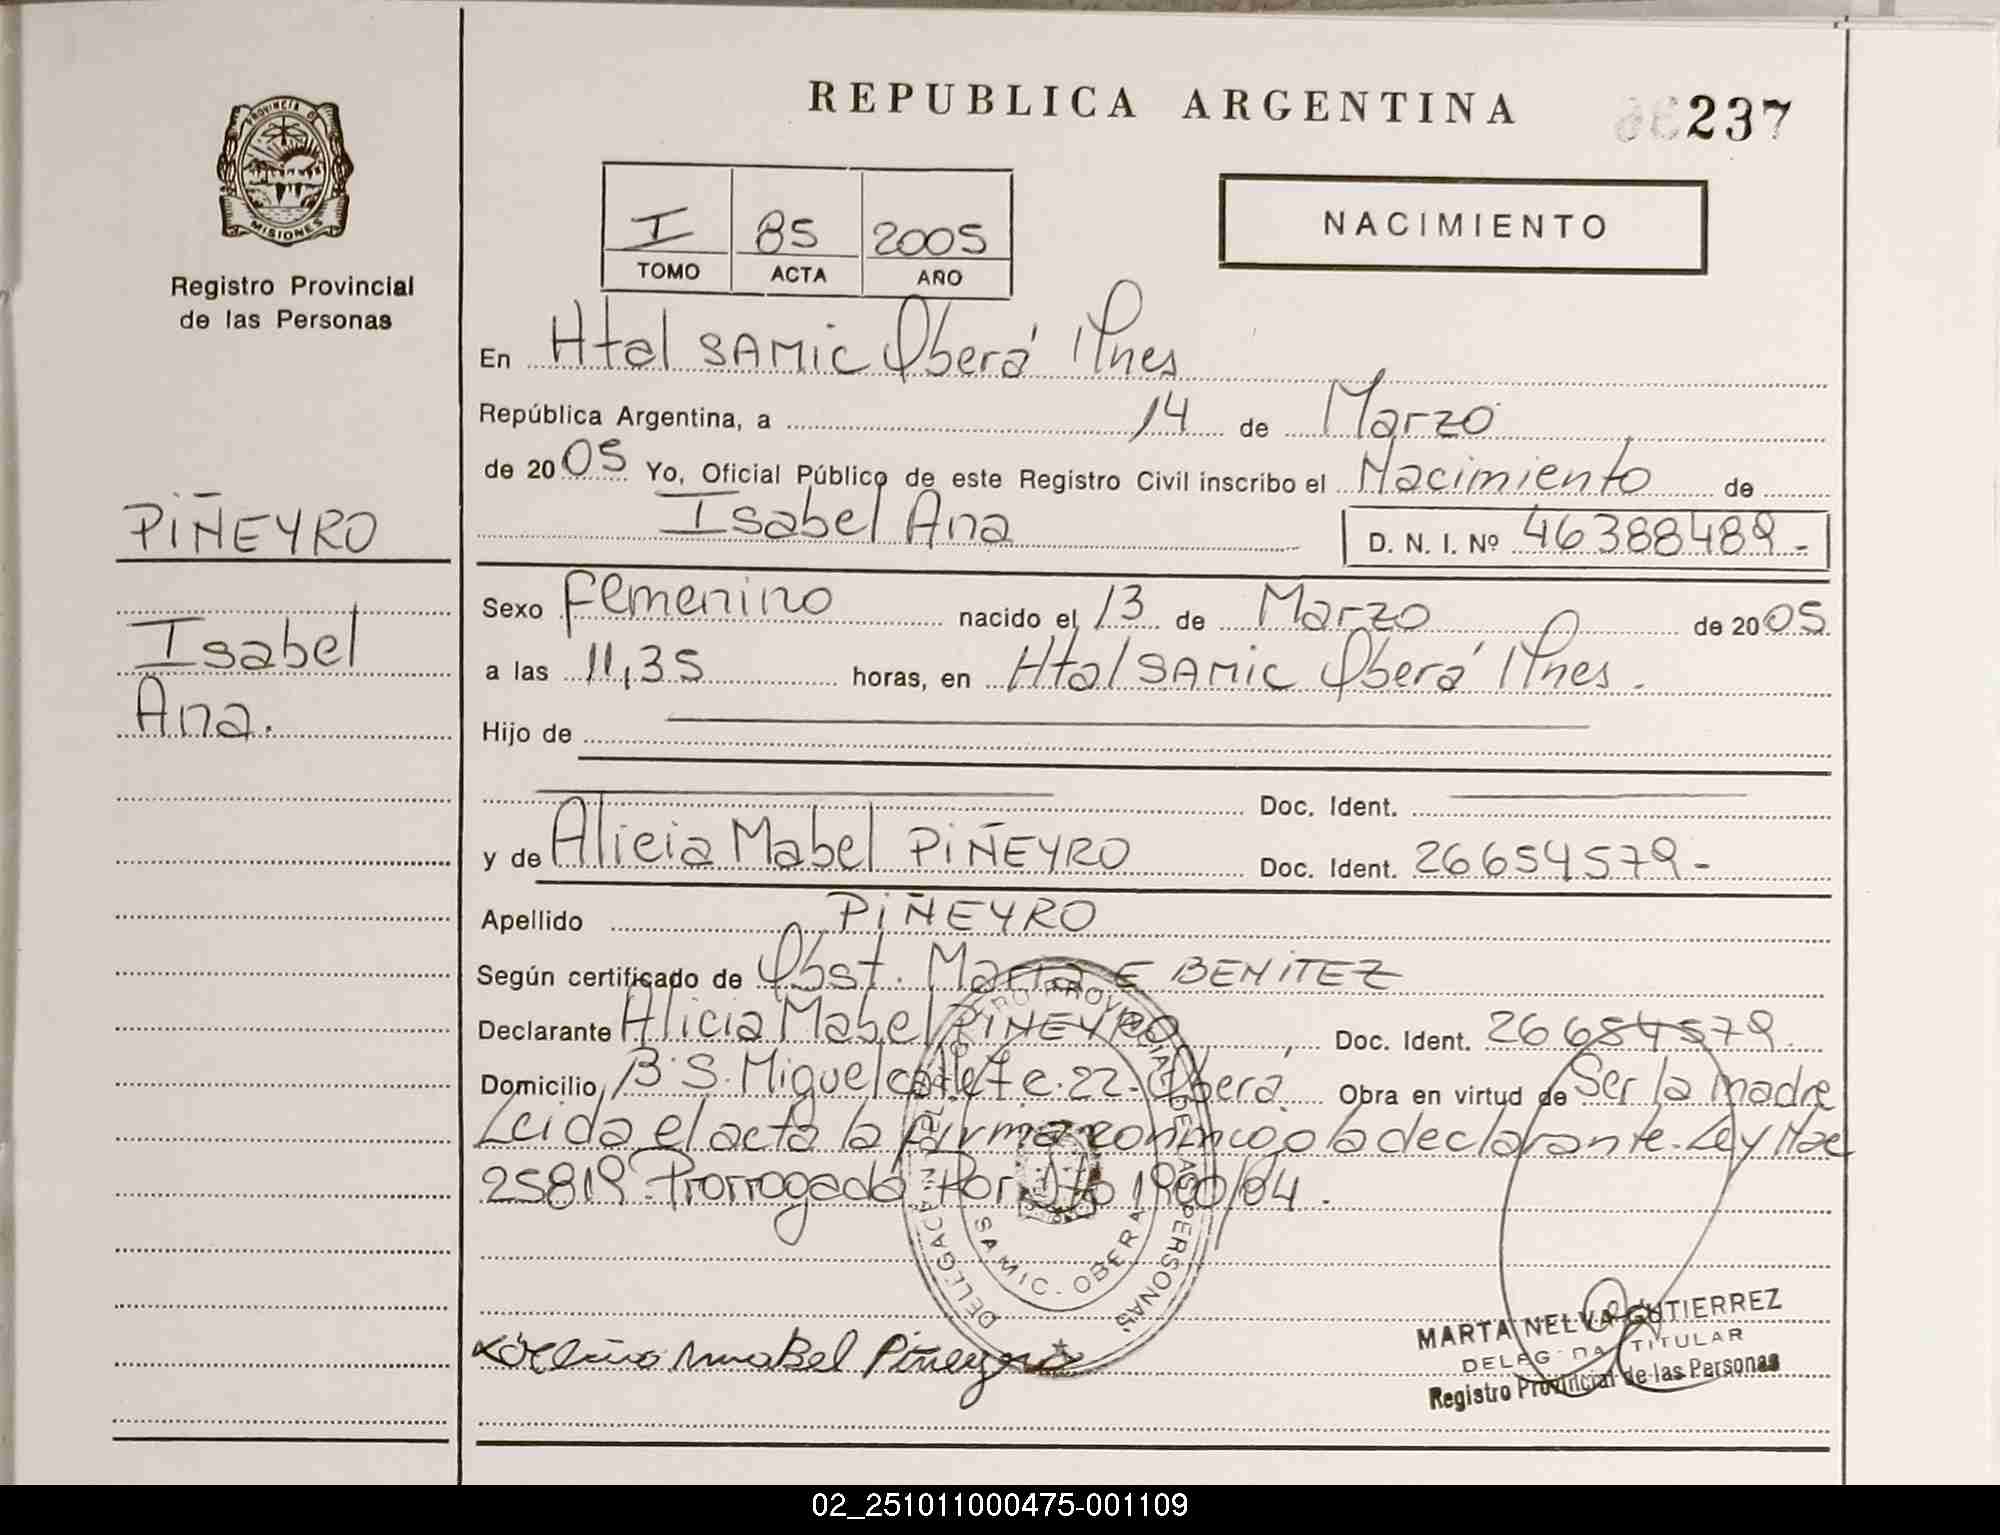 REPUBLICA ARGENTINA
237
PROVINCIA DE
MISIONES
Registro Provincial
de las Personas
I 85 2005
TOMO ACTA AÑO
NACIMIENTO
En Htal SAMIC Oberá Mnes
República Argentina, a 14 de Marzo
de 2005 Yo, Oficial Público de este Registro Civil inscribo el Nacimiento de
Isabel Ana D. N. I. Nº 46388489.-
PIÑEYRO
Isabel
Ana.
Sexo Femenino nacido el 13 de Marzo de 2005
a las 11,35 horas, en Htal SAMIC Oberá Mnes.
Hijo de
Doc. Ident.
y de Alicia Mabel PIÑEYRO Doc. Ident. 26654579.-
Apellido PIÑEYRO
Según certificado de Obst. Maria E BENITEZ
Declarante Alicia Mabel PIÑEYRO, Doc. Ident. 26654579.
Domicilio B: S. Miguel calle 7 c. 22- Oberá. Obra en virtud de Ser la madre
Leida el acta la firma conmigo la declarante. Ley Nac
25819 Prorrogada Por Dto 1900/04.
REGISTRO PROVINCIAL DE LAS PERSONAS
DELEGACION
SAMIC - OBERA
Alicia Mabel Piñeyro
MARTA NELVA GUTIERREZ
DELEGADA TITULAR
Registro Provincial de las Personas
02_251011000475-001109